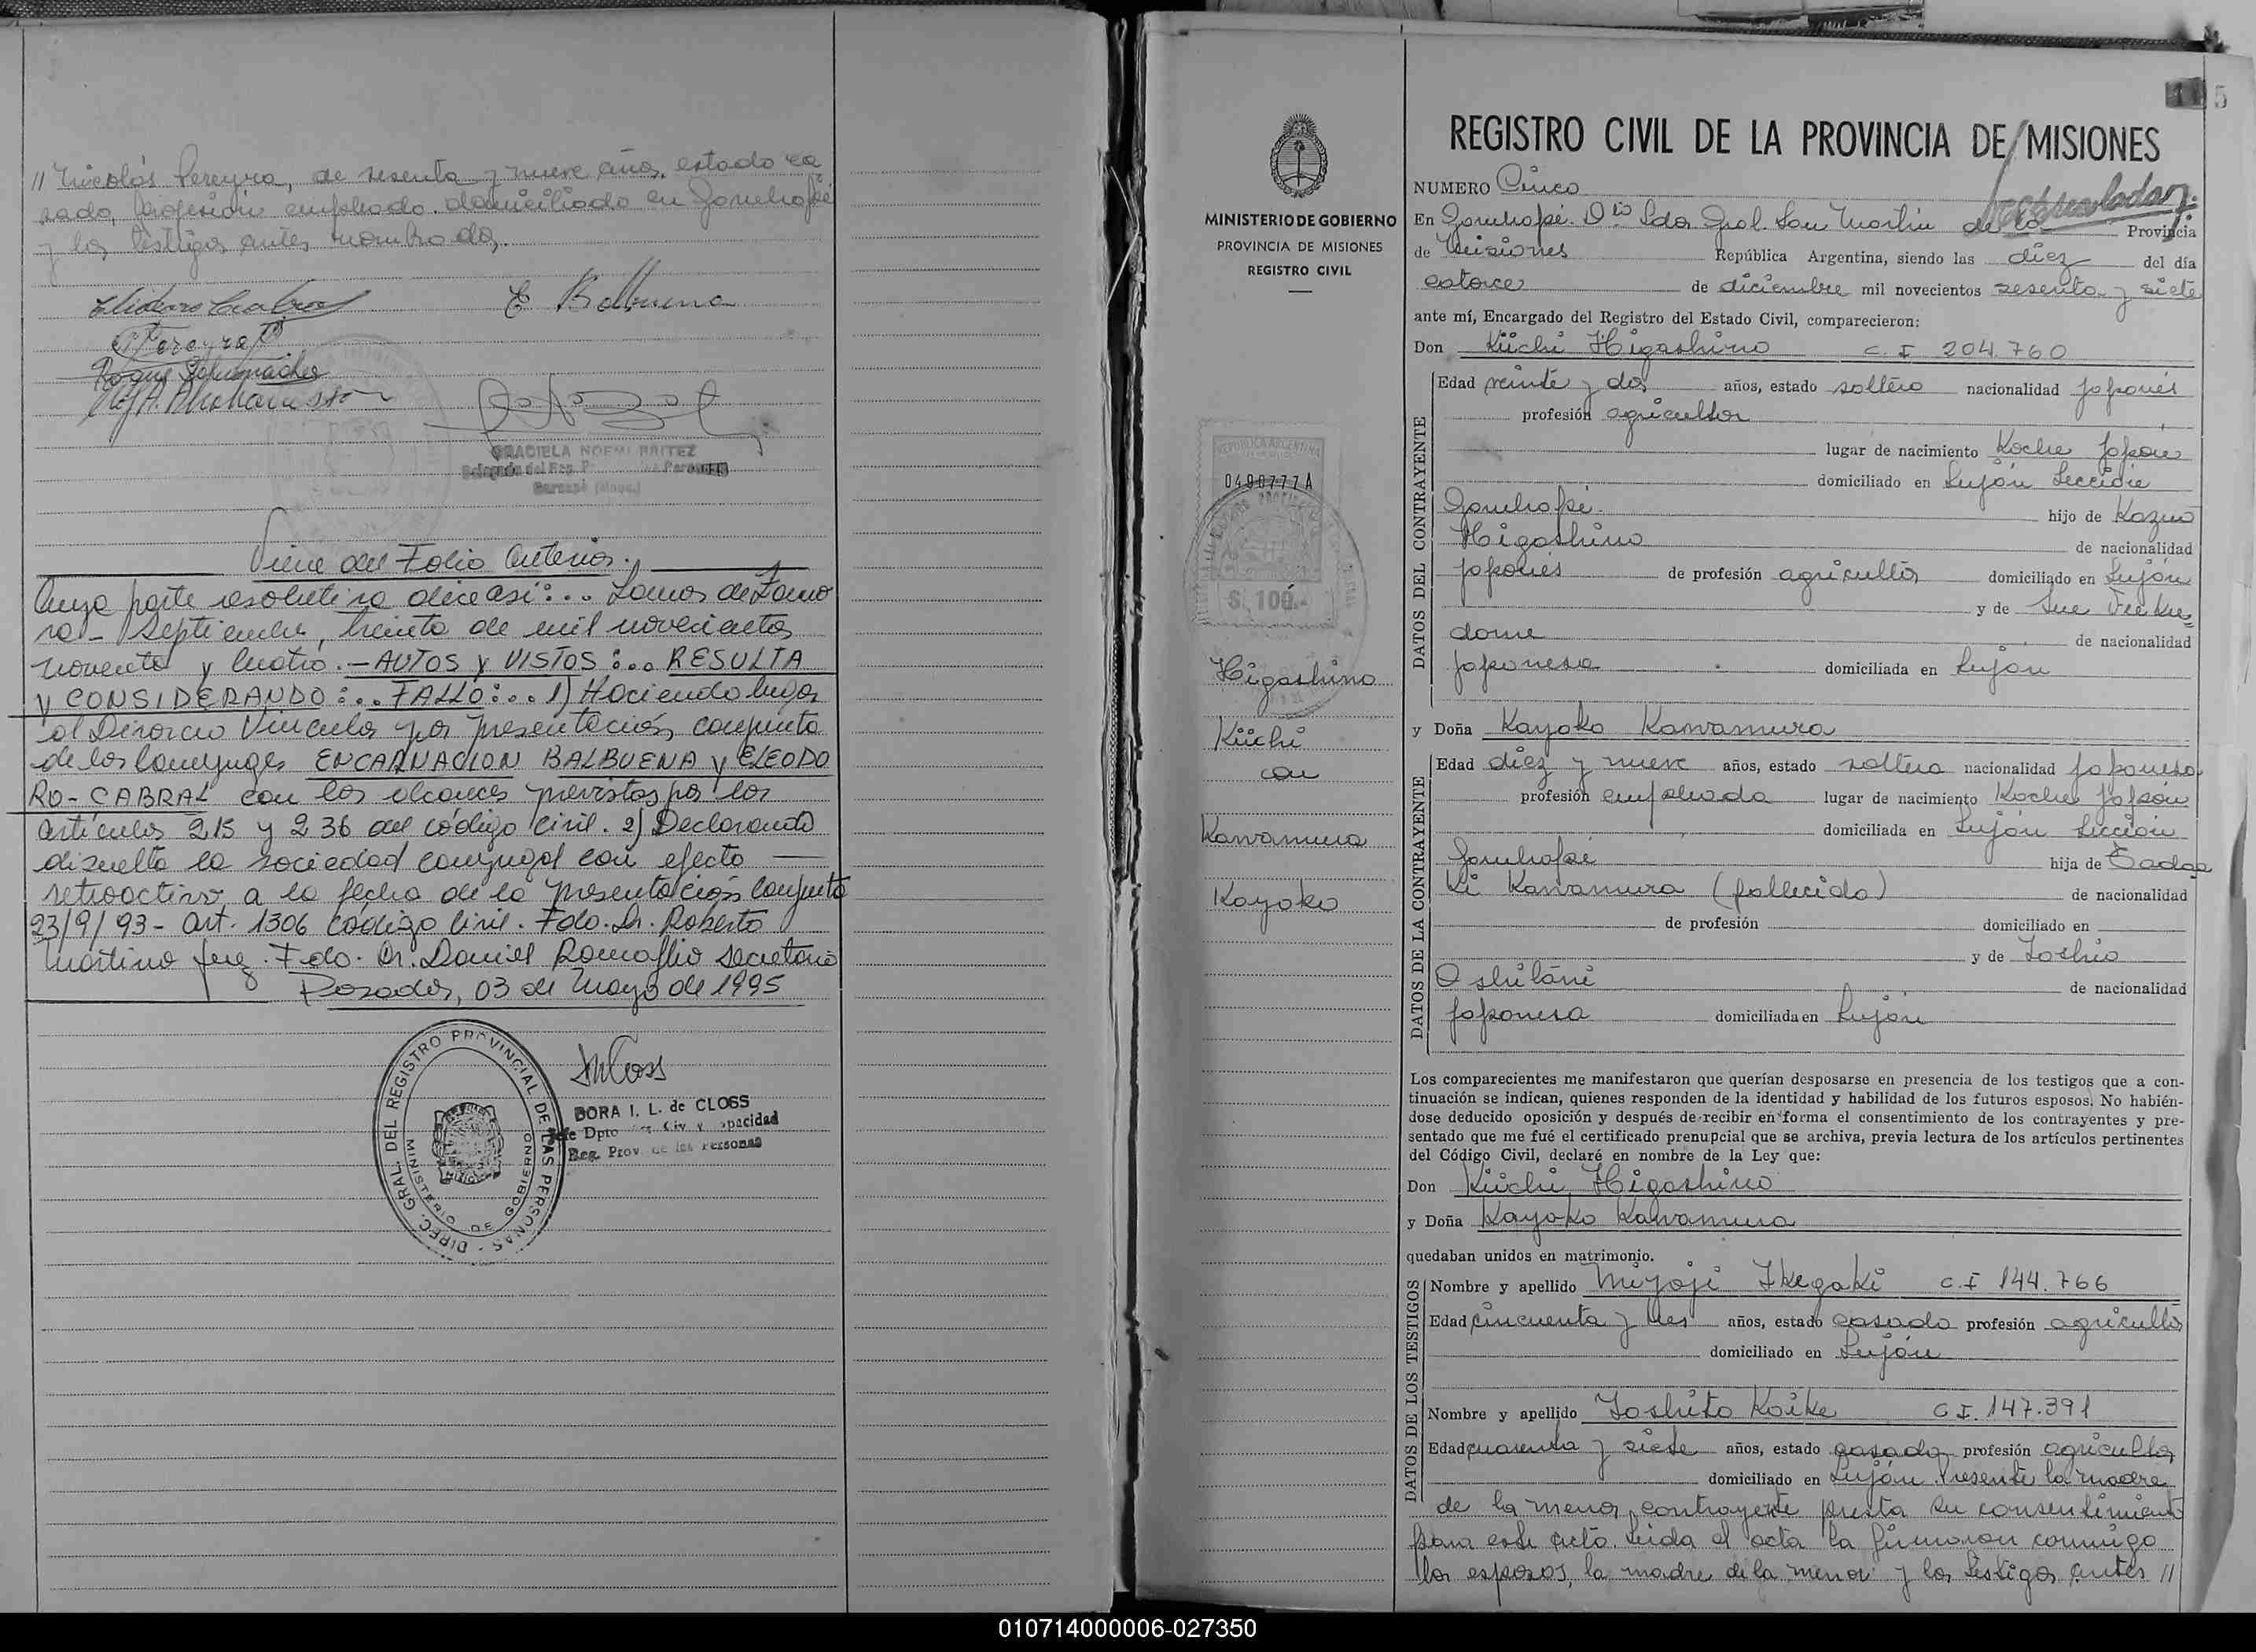 // Nicolás Pereyra, de sesenta y nueve años, estado ca
sado, profesión empleado domiciliado en Garuhapé
y los testigos antes nombrados.
E Balbuena
Pereyra
Roque Schumacher
GRACIELA NOEMI BRITEZ
Garuapé (Mnes.)
Viene del Folio Anterior.
Cuya parte resolutiva dice así:... Lomas de Zamo
ra - Septiembre, treinta de mil novecientos
noventa y cuatro. - AUTOS y VISTOS:... RESULTA
y CONSIDERANDO:... FALLO:... 1) Haciendo lugar
al Divorcio Vincular por presentación conjunta
de los Conyuges ENCARNACION BALBUENA y ELEODO
RO - CABRAL con los alcances previstos por los
artículos 215 y 236 del código Civil. 2) Declarando
disuelta la sociedad conyugal con efecto
retroactivo a la fecha de la presentación conjunta
23/9/93 - Art. 1306 Código Civil. Fdo. Dr. Roberto
Martino Juez. Fdo. Dr. Daniel Secretario
Posadas, 03 de Mayo de 1995
DIREC. GRAL. DEL REGISTRO PROVINCIAL DE LAS PERSONAS -
MINISTERIO DE GOBIERNO
DORA I. L. de CLOSS
Jefe Dpto Civ. y Capacidad
Reg. Prov. de las Personas
5
MINISTERIO DE GOBIERNO
PROVINCIA DE MISIONES
REGISTRO CIVIL
REPUBLICA ARGENTINA
0490777A
$. 100.-
Higashino
Kiichi
con
Kawamura
Kayoko
REGISTRO CIVIL DE LA PROVINCIA DE MISIONES
NUMERO Cinco
En Garuhapé. Dto Ldor Gral. San Martín de la Provincia
de Misiones República Argentina, siendo las diez del día
catorce de diciembre mil novecientos sesenta y siete
ante mí, Encargado del Registro del Estado Civil, comparecieron:
Don Kiichi Higashino C. I 204.760
DATOS DEL CONTRAYENTE
Edad veinte y dos años, estado soltero nacionalidad japonés
profesión agricultor
lugar de nacimiento Koche Japón
domiciliado en Luján Sección
Garuhapé. hijo de Kazuo
Higashino de nacionalidad
japonés de profesión agricultor domiciliado en Luján
y de Sue
dome de nacionalidad
japonesa domiciliada en Luján
y Doña Kayoko Kawamura
DATOS DE LA CONTRAYENTE
Edad diez y nueve años, estado soltera nacionalidad japonesa
profesión empleada lugar de nacimiento Koche Japón
domiciliada en Luján Sección
Garuhapé hija de Sadaa
ki Kawamura (fallecido) de nacionalidad
de profesión domiciliado en
y de Toshio
Oshitani de nacionalidad
japonesa domiciliada en Luján
Los comparecientes me manifestaron que querían desposarse en presencia de los testigos que a con-
tinuación se indican, quienes responden de la identidad y habilidad de los futuros esposos. No habién-
dose deducido oposición y después de recibir en forma el consentimiento de los contrayentes y pre-
sentado que me fué el certificado prenupcial que se archiva, previa lectura de los artículos pertinentes
del Código Civil, declaré en nombre de la Ley que:
Don Kiichi Higashino
y Doña Kayoko Kawamura
quedaban unidos en matrimonio.
DATOS DE LOS TESTIGOS
Nombre y apellido Miyoji Ikegaki C.I 144.766
Edad cincuenta y tres años, estado casado profesión agricultor
domiciliado en Luján
Nombre y apellido Yoshito Koike C I. 147.391
Edad cuarenta y siete años, estado casado profesión agricultor
domiciliado en Luján Presente la madre
de la menor contrayente presta su consentimiento
para este acto. Leida el acta la firmaron conmigo
los esposos, la madre de la menor y los testigos antes //
010714000006-027350